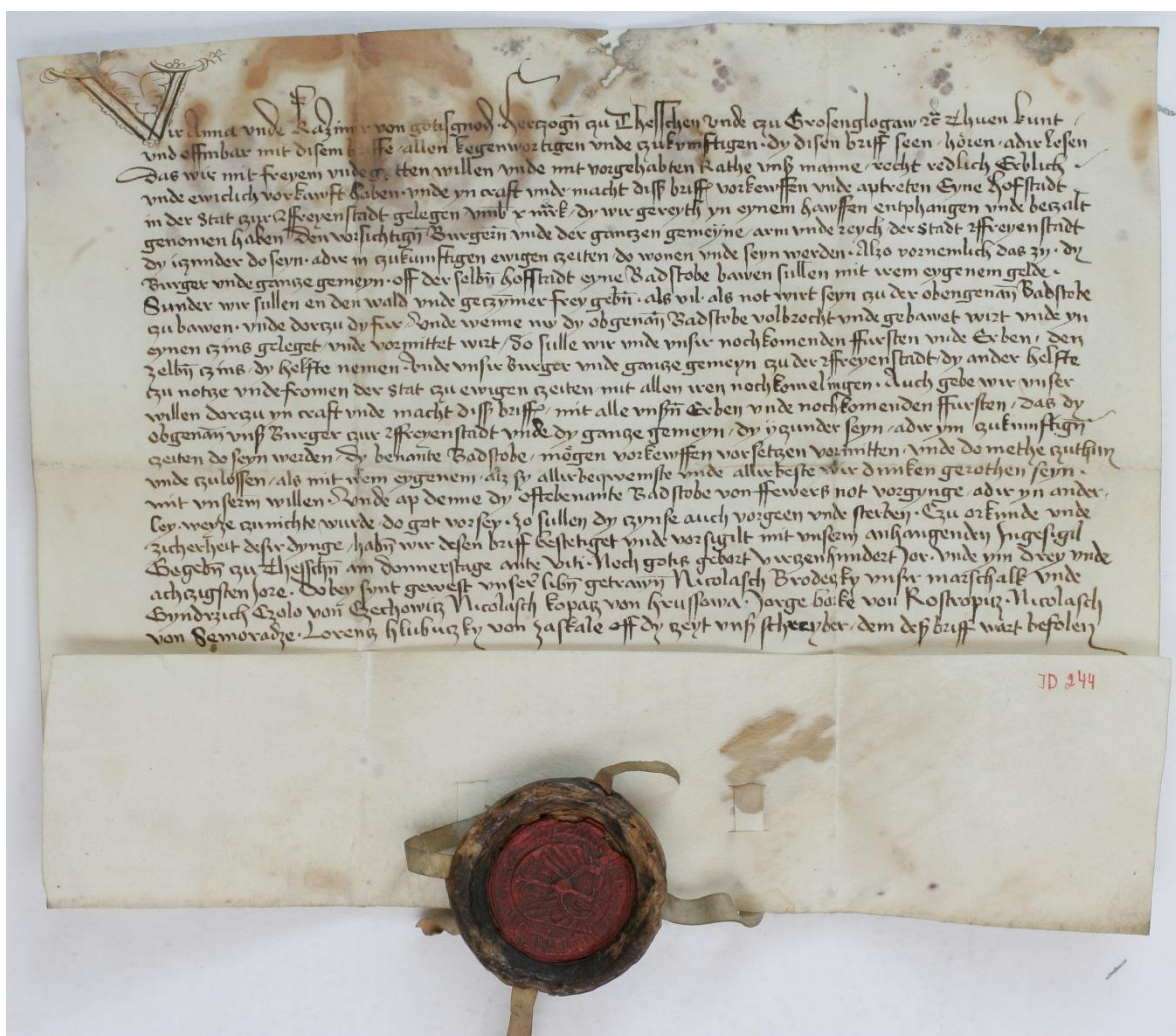 Wir Anna vnde Kazimir von gotisgnod· Hertzogen czu Thesschen vnde czu Grosenglogaw etc Thuen kunt
vnd offinbar mit disem briffe· allen kegenwortigen vnde czukunftigen· dy disen briff seen· hören· adir lesen
Das wir mit freyem vnde willen vnde mit vorgehabten Rathe vnß manne· recht redlich Erblich
vnde ewiclich vorkawft haben· vnde yn craft vnde macht diß briff vorkewffen vnde aptreten Eyne hofstadt
in der Stat czur ffreyenstadt gelegen vmb x mrk· dy wir gereyth yn eynem hawffen entphangen vnde beczalt
genomen haben Den vorsichtign Burgern vnde der gantczen gemeyne· arm vnde reych der Stadt ffreyenstadt
dy iczunder do seyn· adir in czukumftigen ewigen czeiten· do wonen vnde seyn werden· Alzo vornemlich das zy· dy
Burger vnde gancze gemeyn· off der selbn hoffstadt eyne Badstobe bawen sullen mit irem eygenem gelde·
Sunder wir sullen en den wald vnde geczymer frey gebn· als vil· als not wirt seyn czu der obengenan Badstobe
czu bawen· vnde dorczu dy fur· Vnde wenne nw dy obgenan Badstobe volbrocht vnde gebawet wirt vnde yn
eynen czins geleget· vnde vormittet wirt· So sulle wir vnde vnsir nochkomenden ffursten vnde Erben· den
zelbn czins· dy helfte nemen· Vnde vnsir Burger vnde gancze gemeyn czu der ffreyenstadt· dy ander helfte
czu notze vnde fromen der Stat czu ewigen czeiten· mit allen iren nochkomelingen· Auch gebe wir vnser
willen dorczu yn craft vnde macht diß briff· mit alle vnsn Erben vnde nochkomenden ffursten· das dy
obgenan vnß Burger czur ffreyenstadt vnde dy gancze gemeyn· dy yczunder seyn· adir ym czukunftign
czeiten do seyn werden· dy benante Badstobe· mögen vorkewffen vorsetzen vormitten· vnde do methe czuthun
vnde czulossen· als mit irem eygenem· alz sy allirbeqwemste vnde allirbeste wir dunken gerothen seyn·
mit vnserm willen· Vnde ap denne dy oftebenante Badstobe von ffewers not vorgynge· adir yn ander·
ley· weyze czunichte wurde· do got vorsey· zo sullen dy czynse auch vorgeen vnde sterben· Czu orkunde vnde
zicherheit deser dynge· habn wir desen briff bestetiget vnde vorsigilt mit vnserm anhangenden Ingesigil
Gegebn czu Thesschn am donnerstage ante viti· Noch gotis gebort virczenhundert Jor· vnde ym drey vnde
achczigsten Jore· Dobey synt gewest vnser libn getrawn Nicolasch Brodetzky vnsir marschalk vnde
Gyndrzich Czolo von Czechowitz Nicolasch kopatz von hrussowa· Jorge bocke von Rostropitz· Nicolasch
von Semoradze· Lorentz hlubuczky von zaskale off dy czeyt vnß schreyber· dem deß briff wart befolen
JD 244